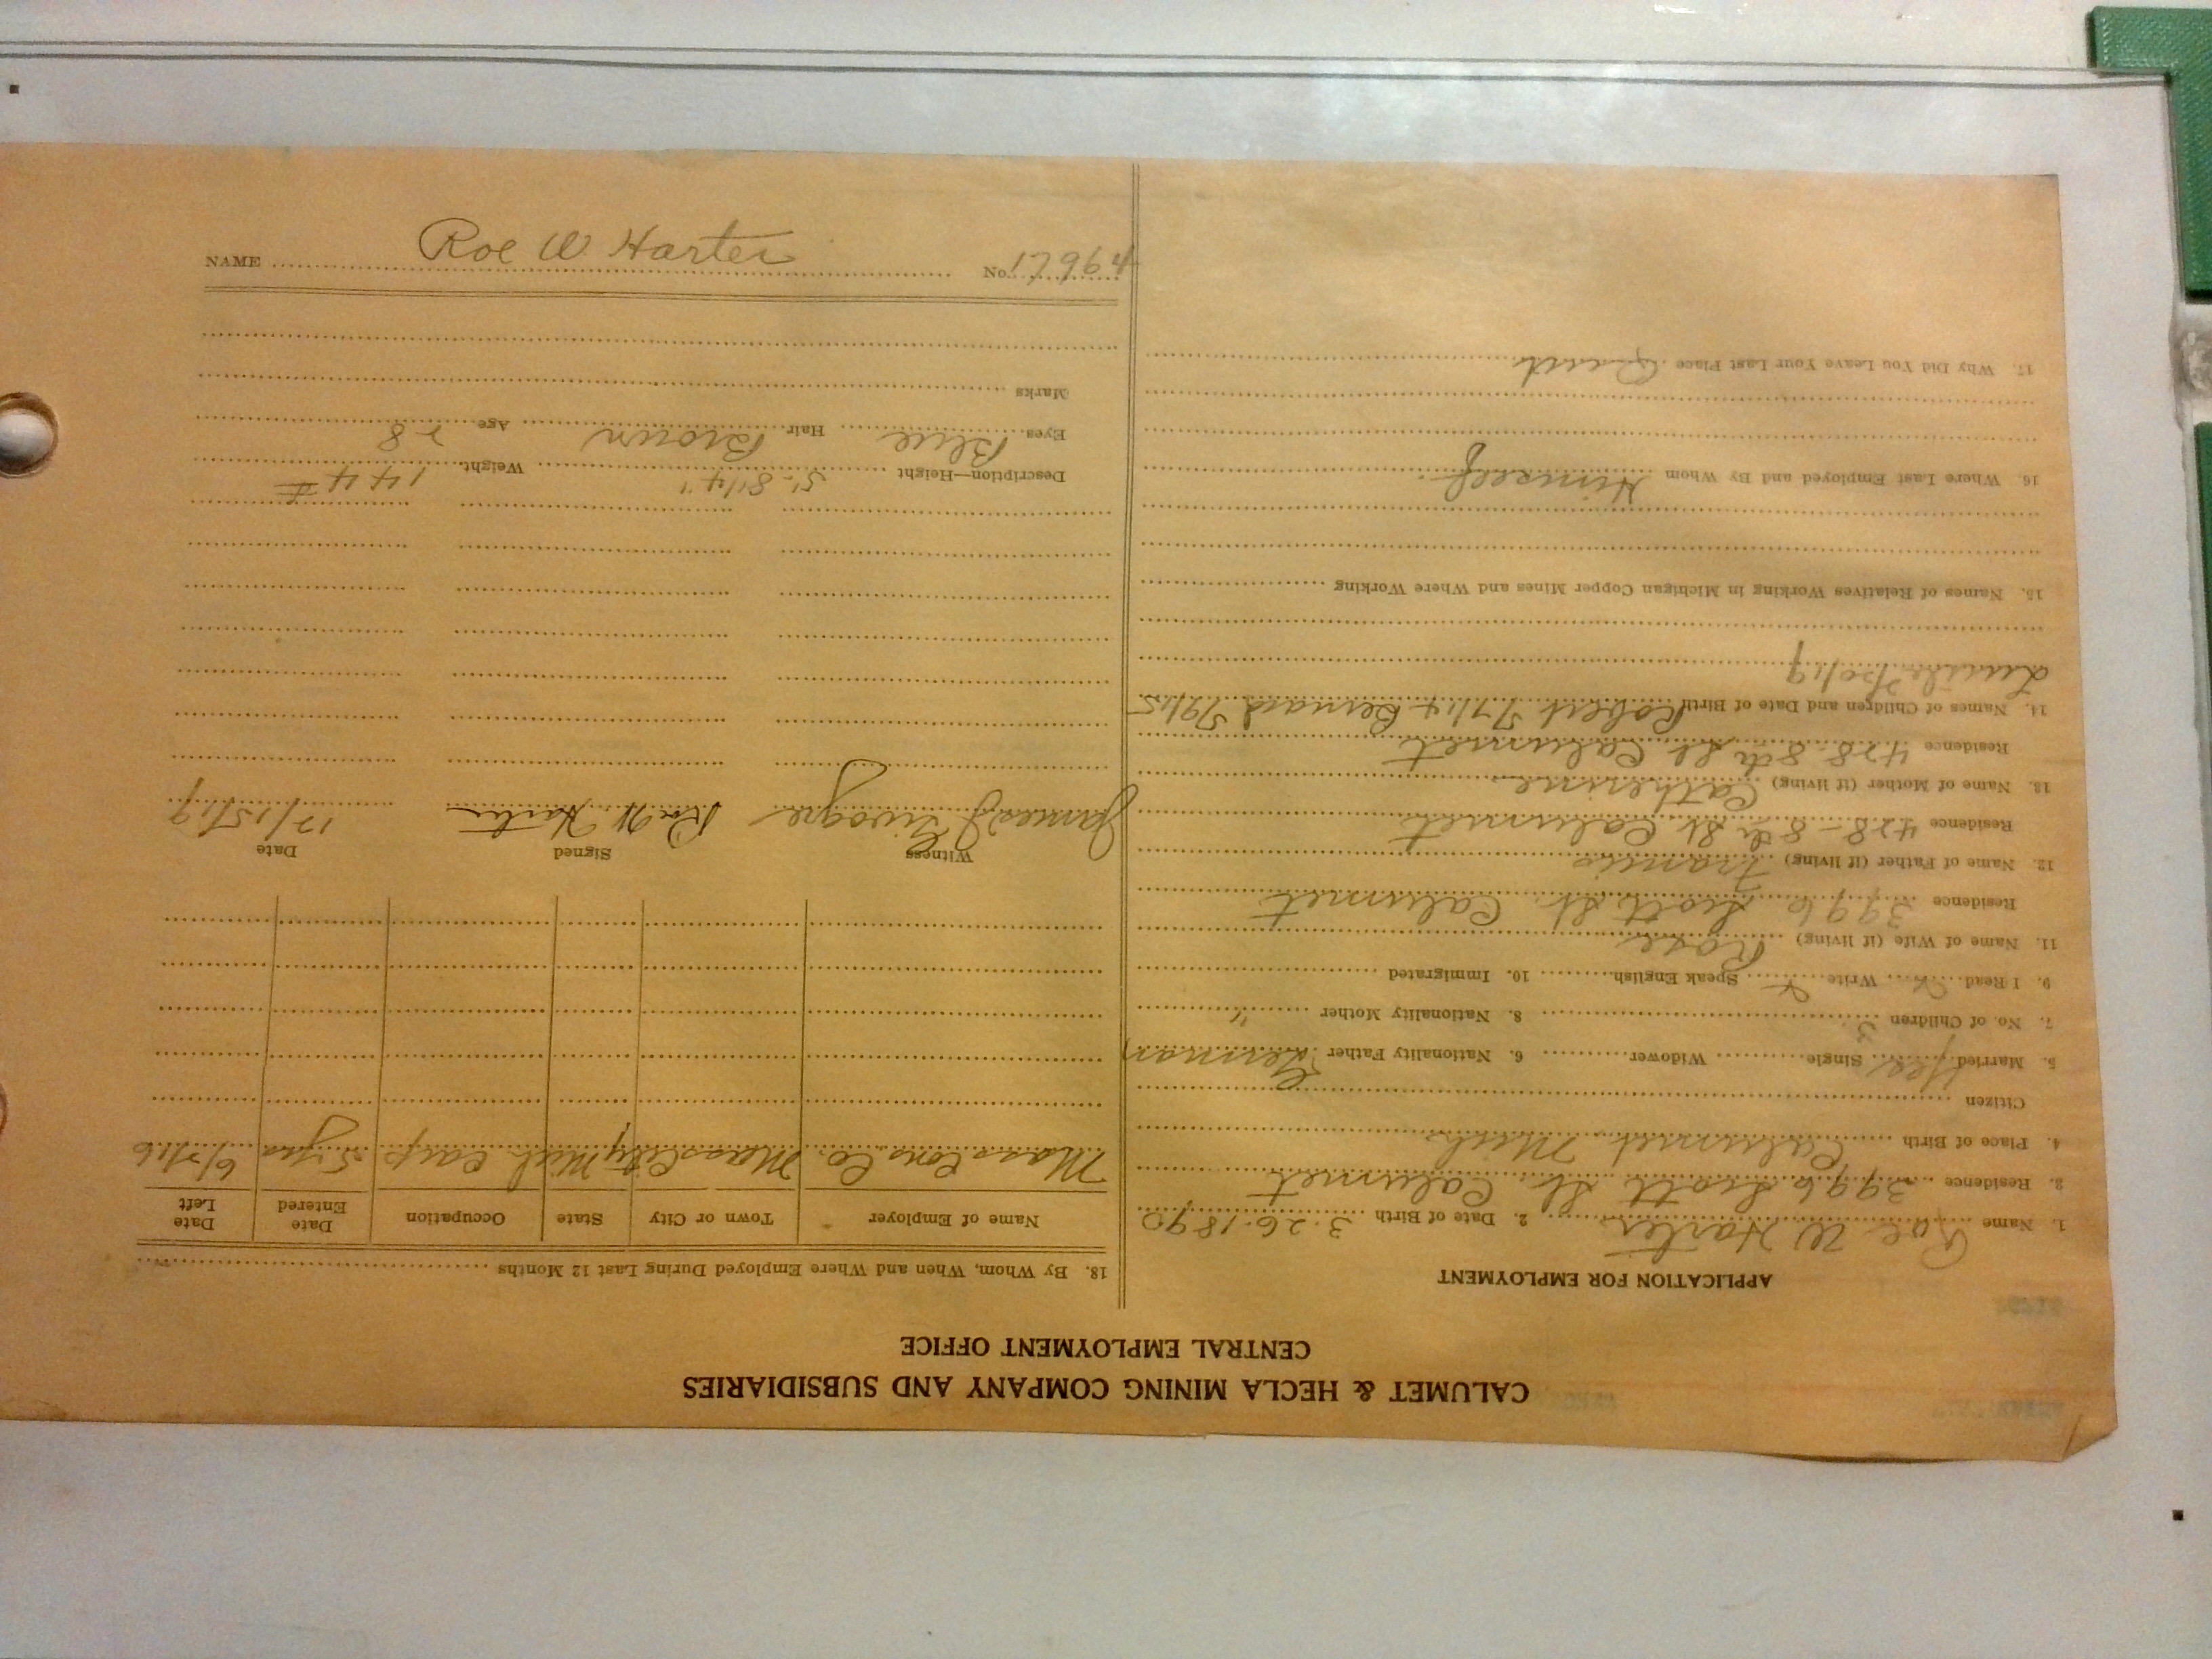 CALUMET & HECLA MINING COMPANY AND SUBSIDIARIES
CENTRAL EMPLOYMENT OFFICE
APPLICATION FOR EMPLOYMENT
1. Name Roe W Harter 2. Date of Birth 3-26-1890
3. Residence 3996 Scott St. Calumet
4. Place of Birth Calumet Mich
Citizen
5. Married Yes Single Widower 6. Nationality Father German
7. No. of Children 3 8. Nationality Mother "
9. I Read Write Speak English 10. Immigrated
11. Name of Wife (if living) Rose
Residence 3996 Scott St. Calumet
12. Name of Father (if living) Francis
Residence 428-8th St Calumet
13. Name of Mother (if living) Catherine
Residence 428-8th St Calumet
14. Names of Children and Date of Birth Robert Bernard
15. Names of Relatives Working in Michigan Copper Mines and Where Working
16. Where Last Employed and By Whom Himself
17. Why Did You Leave Your Last Place Quit
18. By Whom, When and Where Employed During Last 12 Months
Name of Employer Town or City State Occupation Date Entered Date Left
Mass Cons. Co. Mass City Mich Carp 5 yrs 6/7/16
Witness Signed Date
James Roe W. Harter 12/15/19
Description—Height 5'-8 1/4" Weight 144 #
Eyes Blue Hair Brown Age 28
Marks
NAME Roe W Harter No. 17964